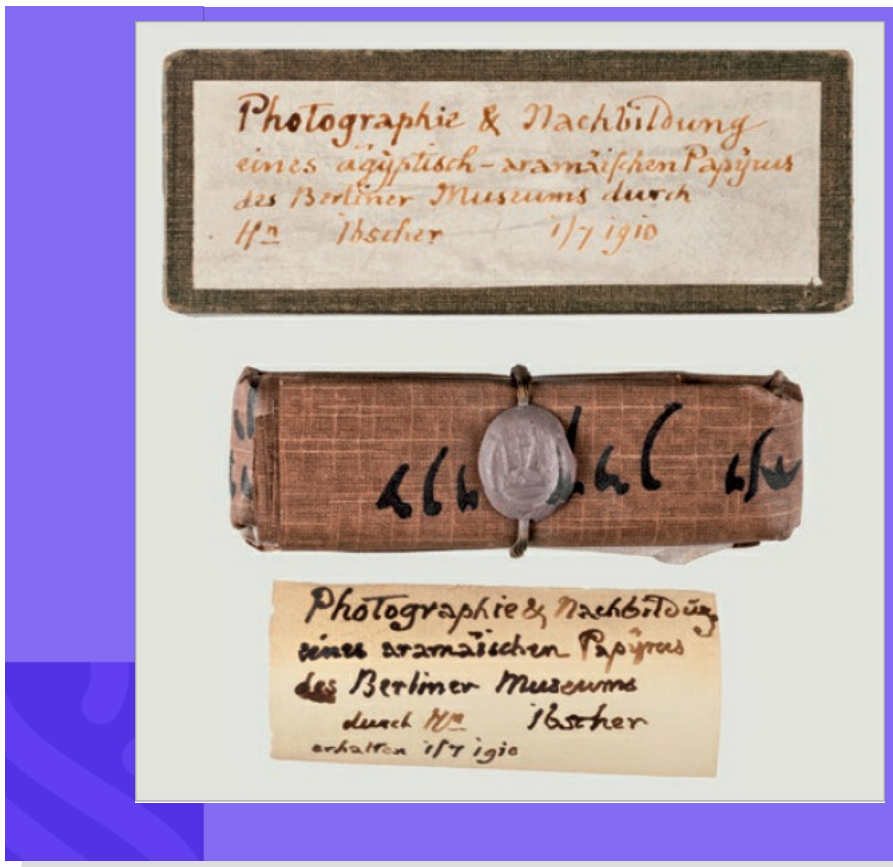 Photographie & Nachbildung
eines ägyptisch-aramäischen Papÿrus
des Berliner Museums durch
Hn Ibscher 1/7 1910
Photographie & Nachbildung
eines aramäischen Papÿrus
des Berliner Museums
durch Hn Ibscher
erhalten 1/7 1910